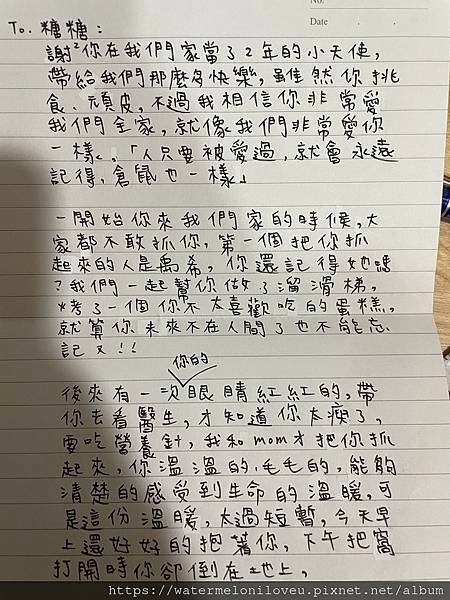 No.
Date . .
To. 糖糖:
謝²你在我們家當了2年的小天使,
帶給我們那麼多快樂,雖然你挑
食、頑皮,不過我相信你非常愛
我們全家,就像我們非常愛你
一樣。「人只要被愛過,就會永遠
記得,倉鼠也一樣」
一開始你來我們家的時候,大
家都不敢抓你,第一個把你抓
起來的人是禹希,你還記得她嗎
?我們一起幫你做了溜滑梯,
烤了一個你不太喜歡吃的蛋糕,
就算你未來不在人間了也不能忘
記ㄡ!!
你的
後來有一次眼睛紅紅的,帶
你去看醫生,才知道你太瘦了,
要吃營養針,我和mom才把你抓
起來,你溫溫的,毛毛的,能夠
清楚的感受到生命的溫暖,可
是這份溫暖,太過短暫,今天早
上還好好的抱著你,下午把窩
打開時你卻倒在地上,
https://watermeloniloveu.pixnet.net/album